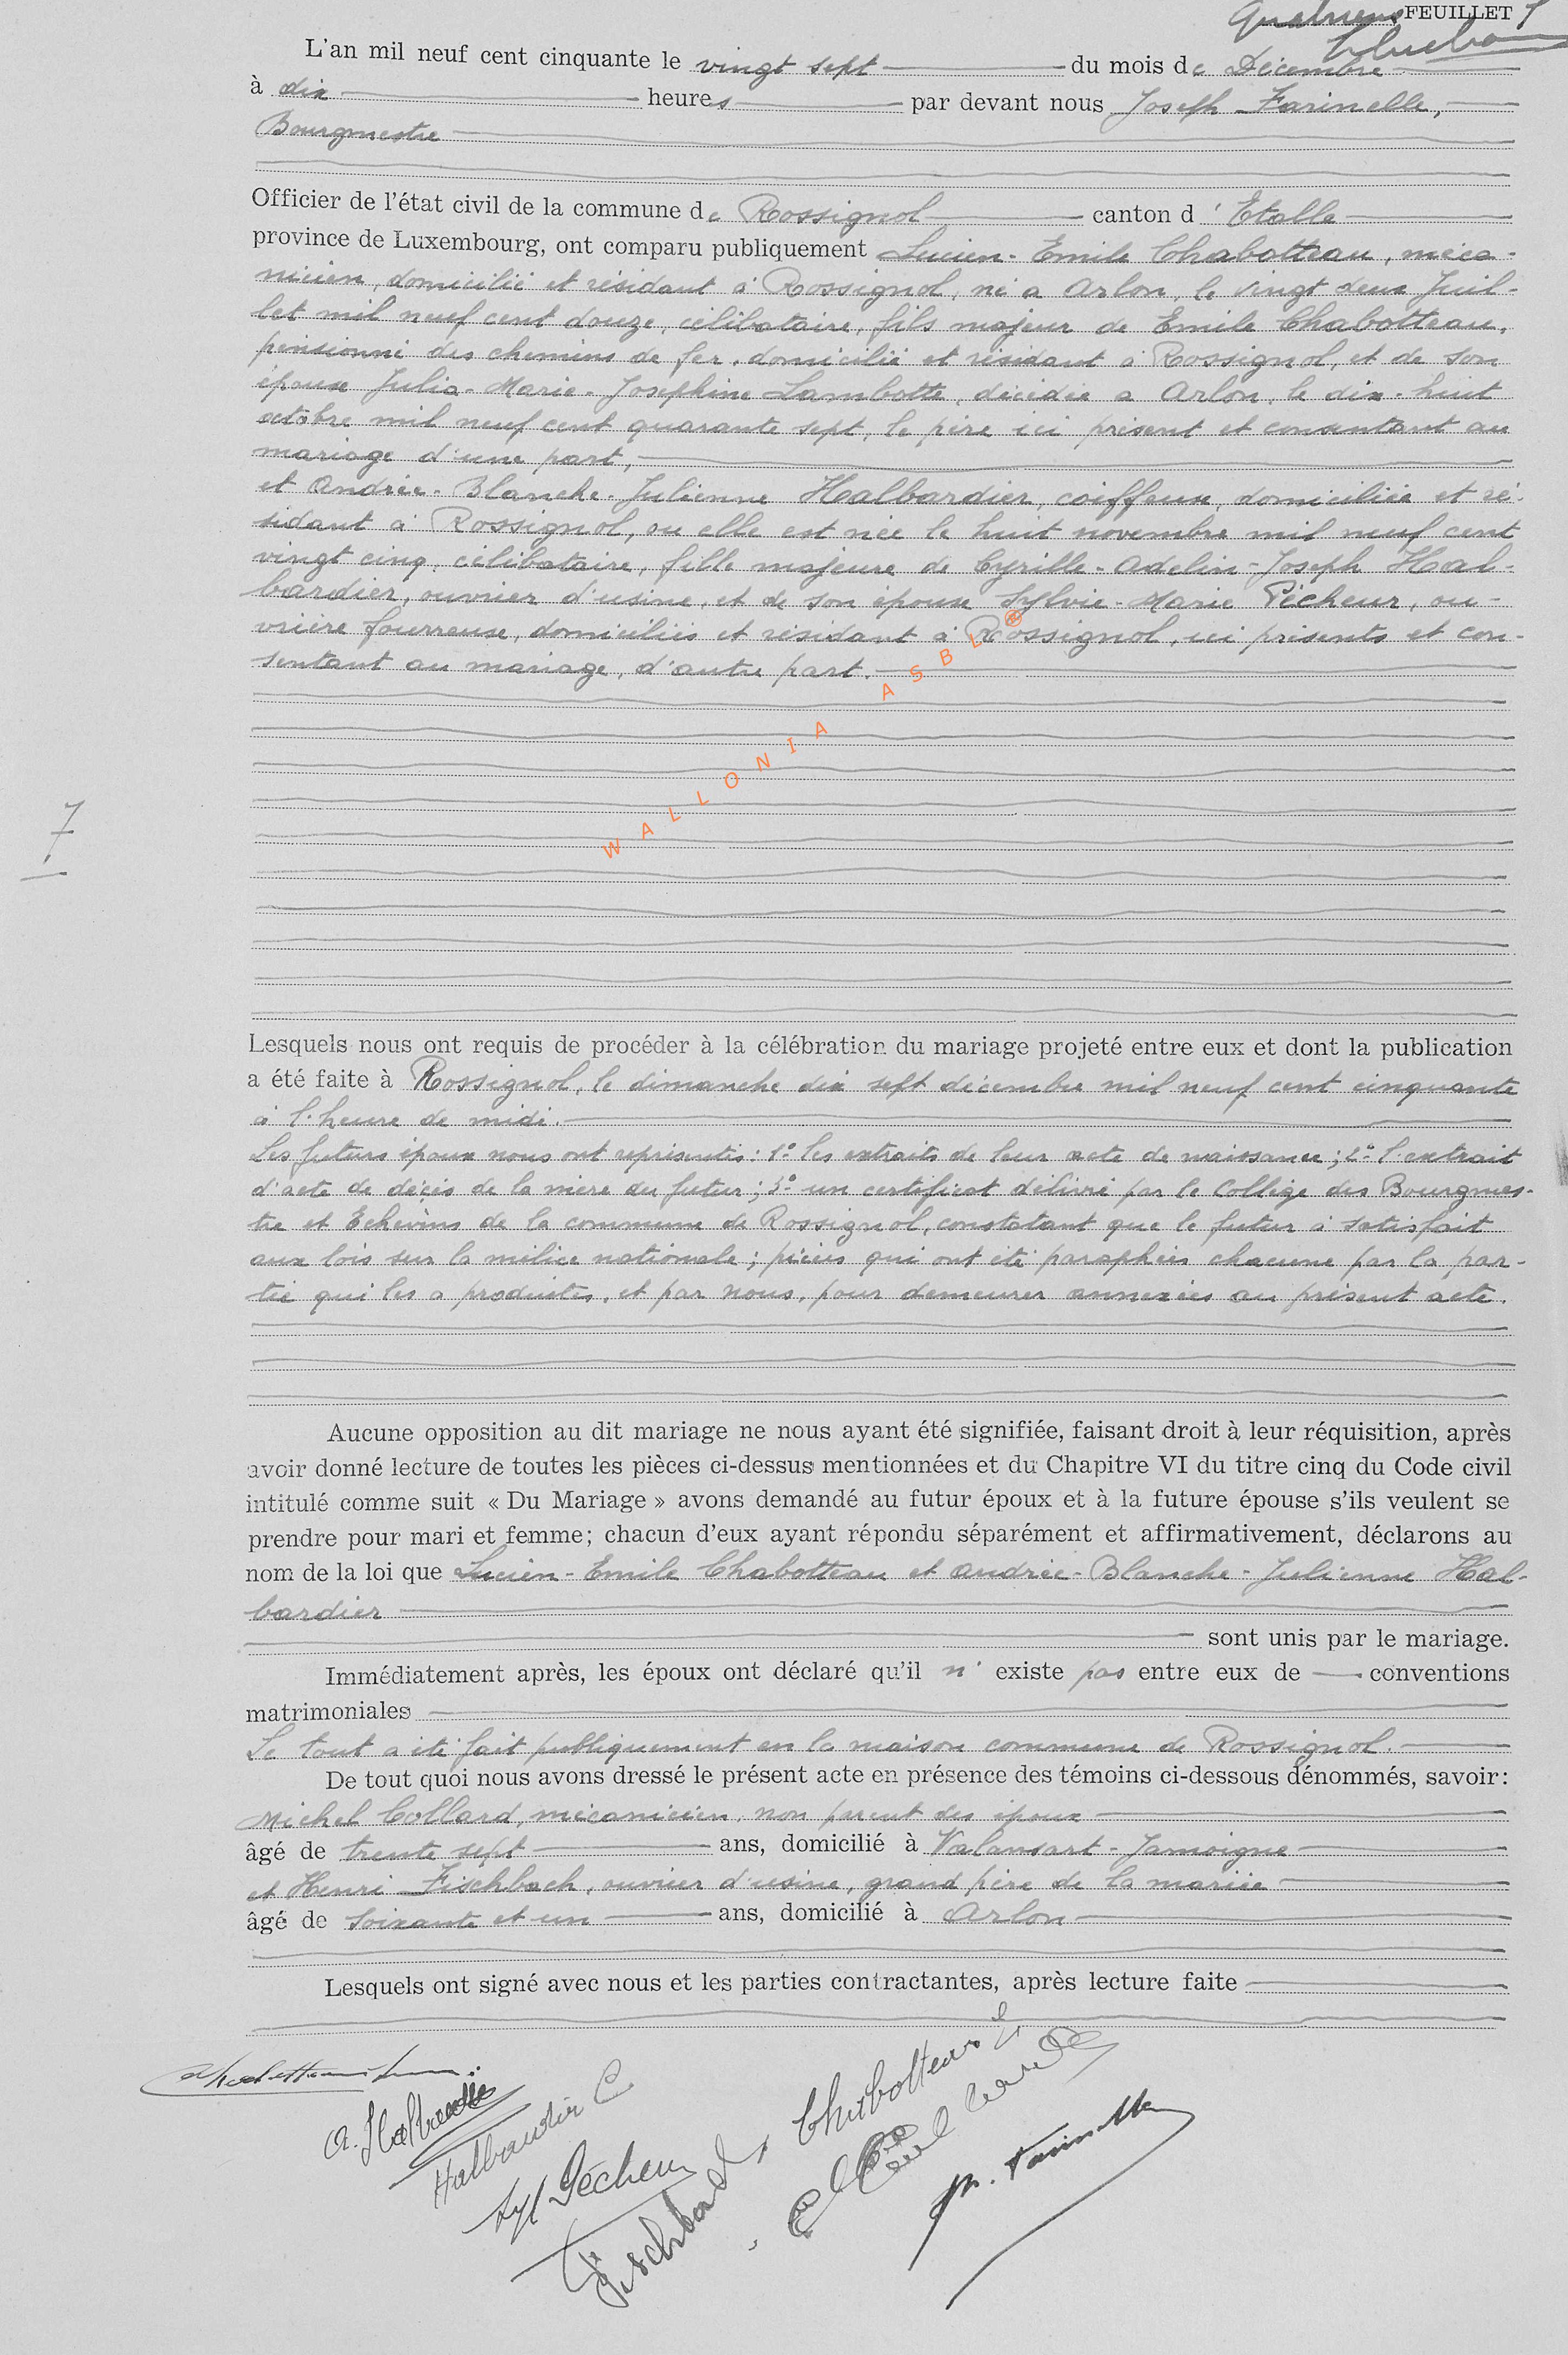 Quatrième FEUILLET
L'an mil neuf cent cinquante le vingt sept du mois de Décembre
à dix heures par devant nous Joseph Farinelle,
Bourgmestre
Officier de l'état civil de la commune de Rossignol canton d'Etalle
province de Luxembourg, ont comparu publiquement Lucien-Emile Chabotteau, méca-
nicien, domicilié et résidant à Rossignol, né à Arlon, le vingt deux Juil-
let mil neuf cent douze, célibataire, fils majeur de Emile Chabotteau,
pensionné des chemins de fer, domicilié et résidant à Rossignol, et de son
épouse Julia-Marie-Joséphine Lambotte, décédée à Arlon, le dix-huit
octobre mil neuf cent quarante sept, le père ici présent et consentant au
mariage d'une part,
et Andrée-Blanche-Julienne Halbardier, coiffeuse, domiciliée et ré-
sidant à Rossignol, ou elle est née le huit novembre mil neuf cent
vingt cinq, célibataire, fille majeure de Cyrille-Adelin-Joseph Hal-
bardier, ouvrier d'usine, et de son épouse Sylvie-Marie Pécheur, ou-
vrière fourreuse, domiciliés et résidant à Rossignol, ici présents et con-
sentant au mariage, d'autre part.
WALLONIA ASBL®
7
Lesquels nous ont requis de procéder à la célébration du mariage projeté entre eux et dont la publication
a été faite à Rossignol, le dimanche dix sept décembre mil neuf cent cinquante
à l'heure de midi.
Les futurs époux nous ont représentés: 1° les extraits de leur acte de naissance; 2° l'extrait
d'acte de décès de la mère du futur; 3° un certificat délivré par le Collège des Bourgmes-
tre et Echevins de la commune de Rossignol, constatant que le futur à satisfait
aux lois sur la milice nationale; pièces qui ont été paraphées chacune par la par-
tie qui les a produites, et par nous, pour demeurer annexées au présent acte.
Aucune opposition au dit mariage ne nous ayant été signifiée, faisant droit à leur réquisition, après
avoir donné lecture de toutes les pièces ci-dessus mentionnées et du Chapitre VI du titre cinq du Code civil
intitulé comme suit « Du Mariage » avons demandé au futur époux et à la future épouse s'ils veulent se
prendre pour mari et femme; chacun d'eux ayant répondu séparément et affirmativement, déclarons au
nom de la loi que Lucien-Emile Chabotteau et Andrée-Blanche-Julienne Hal-
bardier
sont unis par le mariage.
Immédiatement après, les époux ont déclaré qu'il n'existe pas entre eux de conventions
matrimoniales
Le tout a été fait publiquement en la maison commune de Rossignol.
De tout quoi nous avons dressé le présent acte en présence des témoins ci-dessous dénommés, savoir:
Michel Collard, mécanicien, non parent des époux
âgé de trente sept ans, domicilié à Valansart-Jamoigne
et Henri Fischbach, ouvrier d'usine, grand père de la mariée
âgé de soixante et un ans, domicilié à Arlon
Lesquels ont signé avec nous et les parties contractantes, après lecture faite
A. Halbardier
Halbardier C
Syl Pécheur
Fischbach
Chabotteau E
Jph. Farinelle